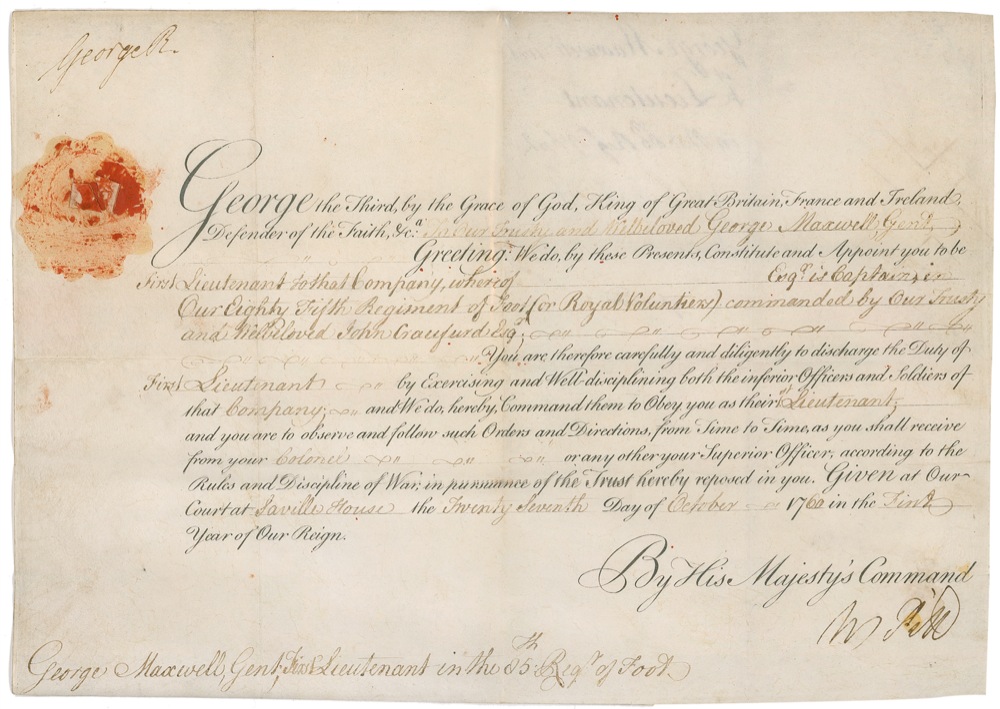 George R.
George the Third, by the Grace of God, King of Great Britain, France and Ireland,
Defender of the Faith, &c.a To Our Trusty and Wellbeloved George Maxwell, Gent.
Greeting: We do, by these Presents, Constitute and Appoint you to be
First Lieutenant to that Company, whereof Esqr. is Captain, in
Our Eighty Fifth Regiment of Foot (or Royal Voluntiers) commanded by Our Trusty
and Wellbeloved John Craufurd Esqr.
You are therefore carefully and diligently to discharge the Duty of
First Lieutenant by Exercising and Well-disciplining both the inferior Officers and Soldiers of
that Company, and We do, hereby, Command them to Obey you as their 1st Lieutenant,
and you are to observe and follow such Orders and Directions, from Time to Time, as you shall receive
from your Colonel or any other your Superior Officer, according to the
Rules and Discipline of War, in pursuance of the Trust hereby reposed in you. Given at Our
Court at Saville House the Twenty Seventh Day of October 1760 in the First
Year of Our Reign.
By His Majesty's Command
W Pitt
George Maxwell, Gent, First Lieutenant in the 85th Regt. of Foot.